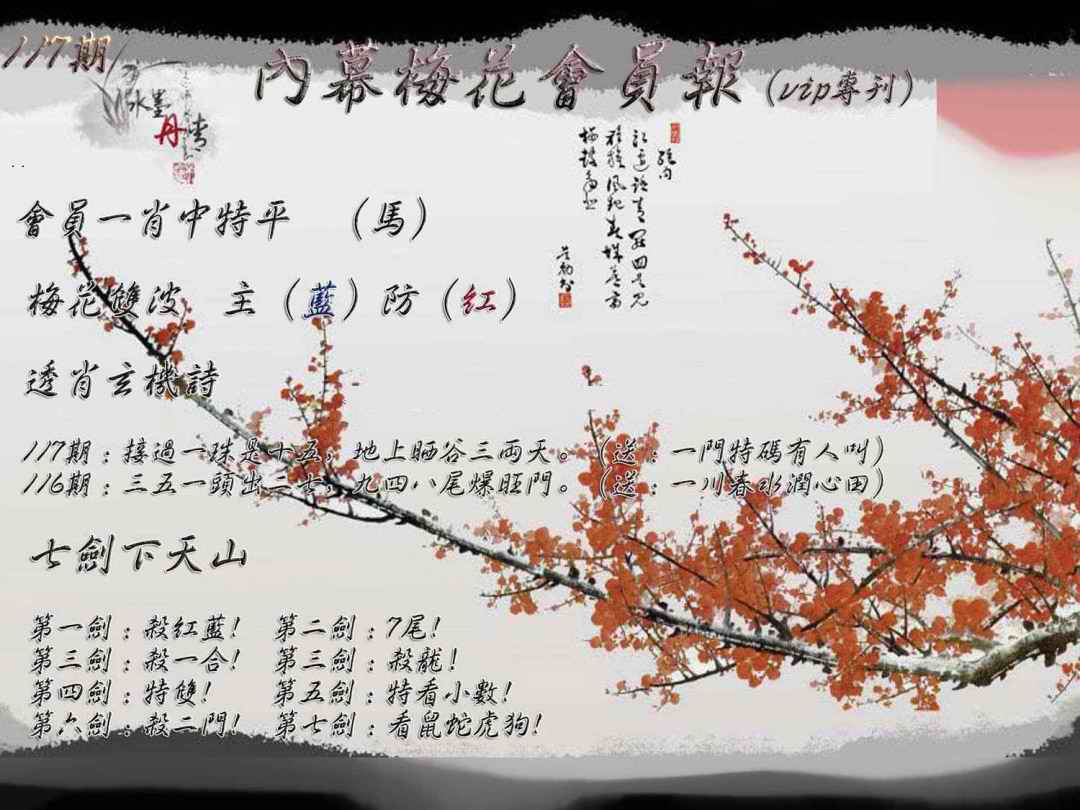 117期
內幕梅花會員報(vip專刊)
水墨
丹青
會員一肖中特平 (馬)
梅花雙波 主(藍)防(紅)
透肖玄機詩
117期：接過一珠是十五，地上晒谷三兩天。(送：一門特碼有人叫)
116期：三五一頭出二七，九四八尾爆旺門。(送：一川春水潤心田)
七劍下天山
第一劍：殺紅藍! 第二劍：7尾!
第三劍：殺一合! 第三劍：殺龍!
第四劍：特雙! 第五劍：特看小數!
第六劍：殺二門! 第七劍：看鼠蛇虎狗!